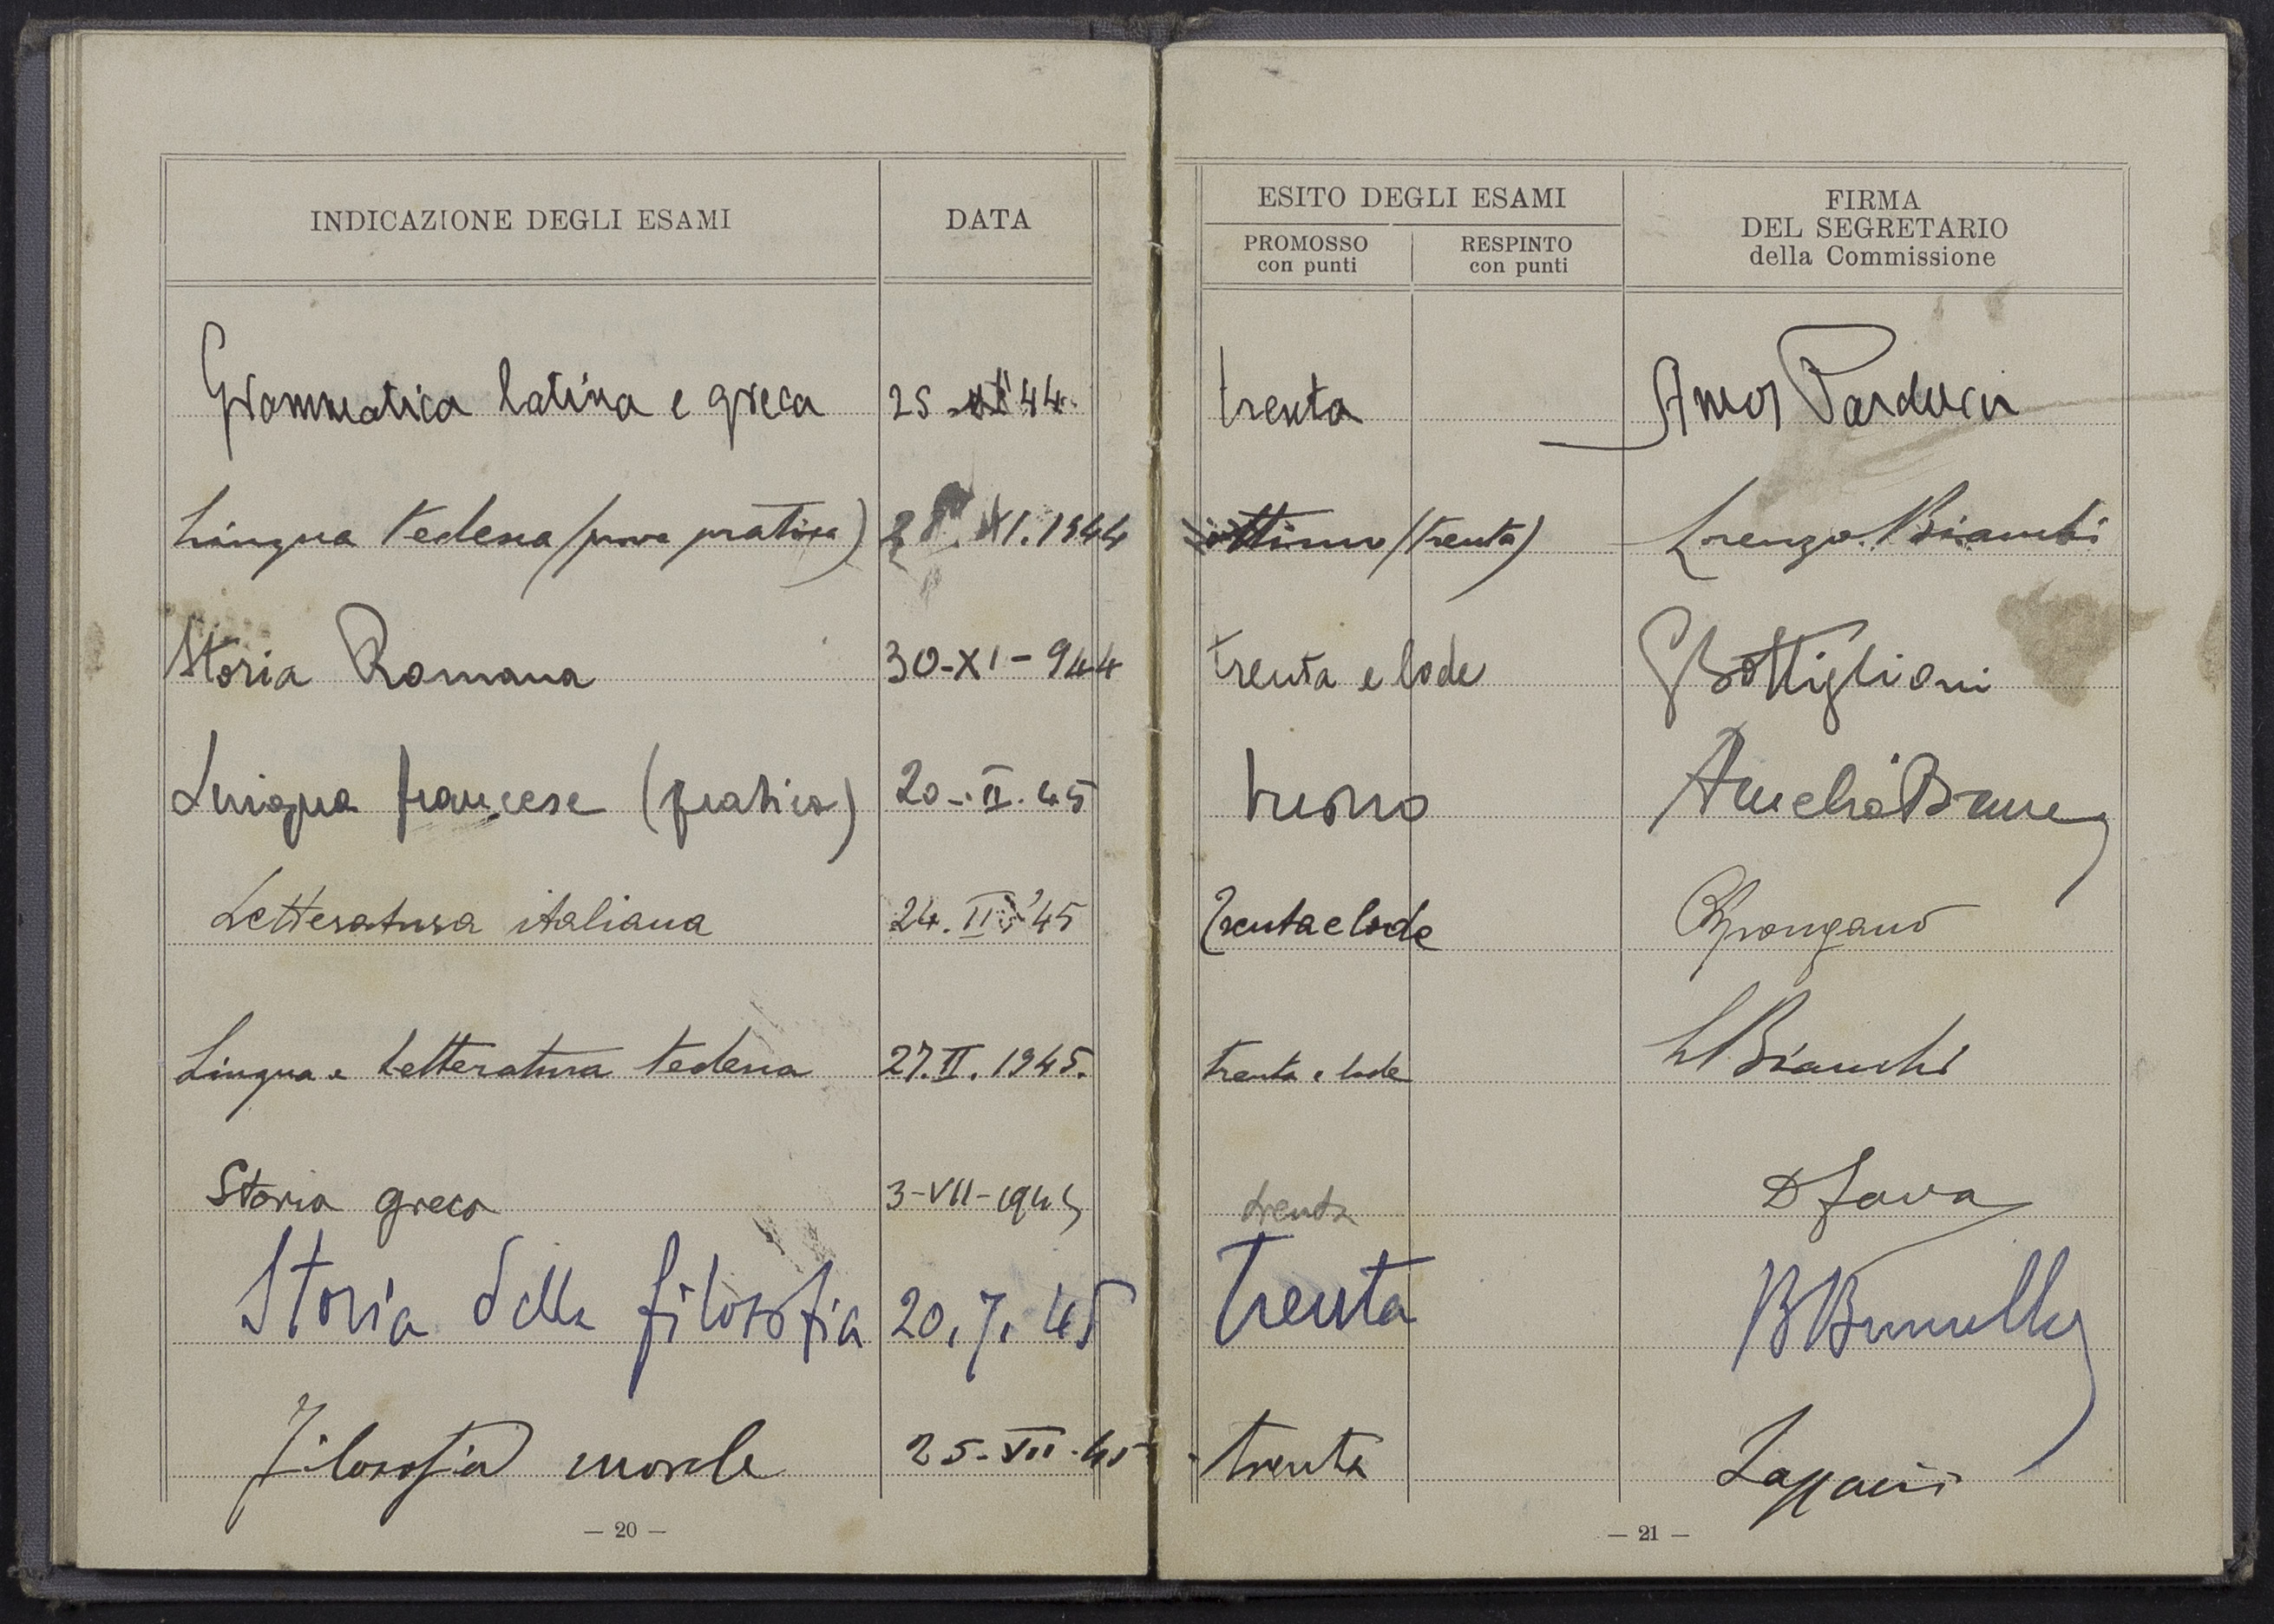 INDICAZIONE DEGLI ESAMI DATA
ESITO DEGLI ESAMI
PROMOSSO con punti
RESPINTO con punti
FIRMA
DEL SEGRETARIO
della Commissione
Grammatica latina e greca 25 XI '44. trenta Amos Parducci
Lingua tedesca (prova pratica) XI. 1944 ottimo (trenta) Lorenzo Bianchi
Storia Romana 30-XI-944 trenta e lode GBottiglioni
Lingua francese (pratica) 20-II.45 buono
Letteratura italiana 24. II '45 trenta e lode RSpongano
Lingua e letteratura tedesca 27.II.1945. trenta e lode LBianchi
Storia greca 3-VII-1945 trenta
Storia della filosofia 20.7.45 Trenta
Filosofia morale 25-VII-45 trenta
— 20 —
— 21 —